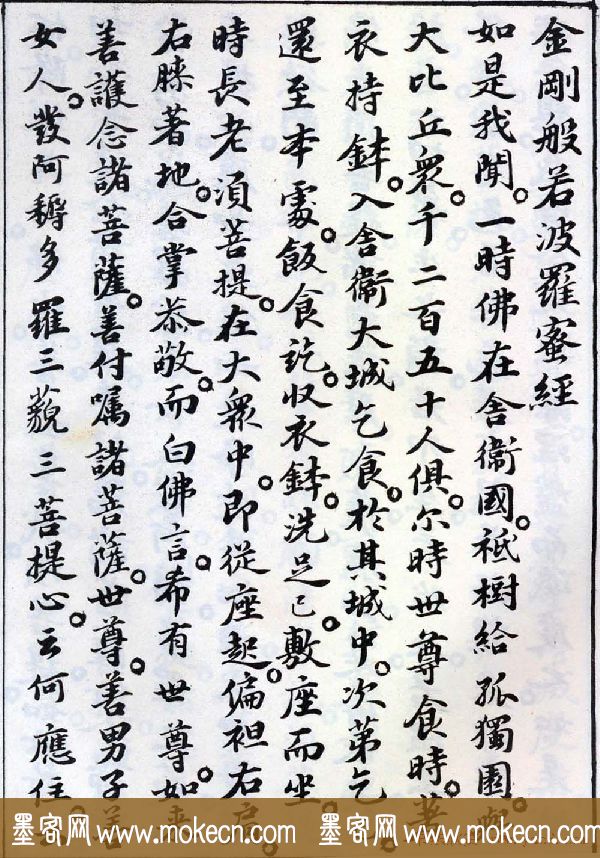 金剛般若波羅蜜經
如是我聞。一時佛在舍衞國。祇樹給孤獨園。
大比丘衆。千二百五十人俱。尒時世尊食時。著
衣持鉢。入舍衞大城乞食。於其城中。次第乞
還至本處。飯食訖。収衣鉢。洗足已。敷座而坐。
時長老須菩提。在大衆中。即從座起。偏袒右肩。
右膝著地。合掌恭敬。而白佛言。希有世尊。如來
善護念諸菩薩。善付囑諸菩薩。世尊。善男子善
女人。發阿耨多羅三藐三菩提心。云何應住。
墨客网 www.mokecn.com 墨客网 www.mokecn.com